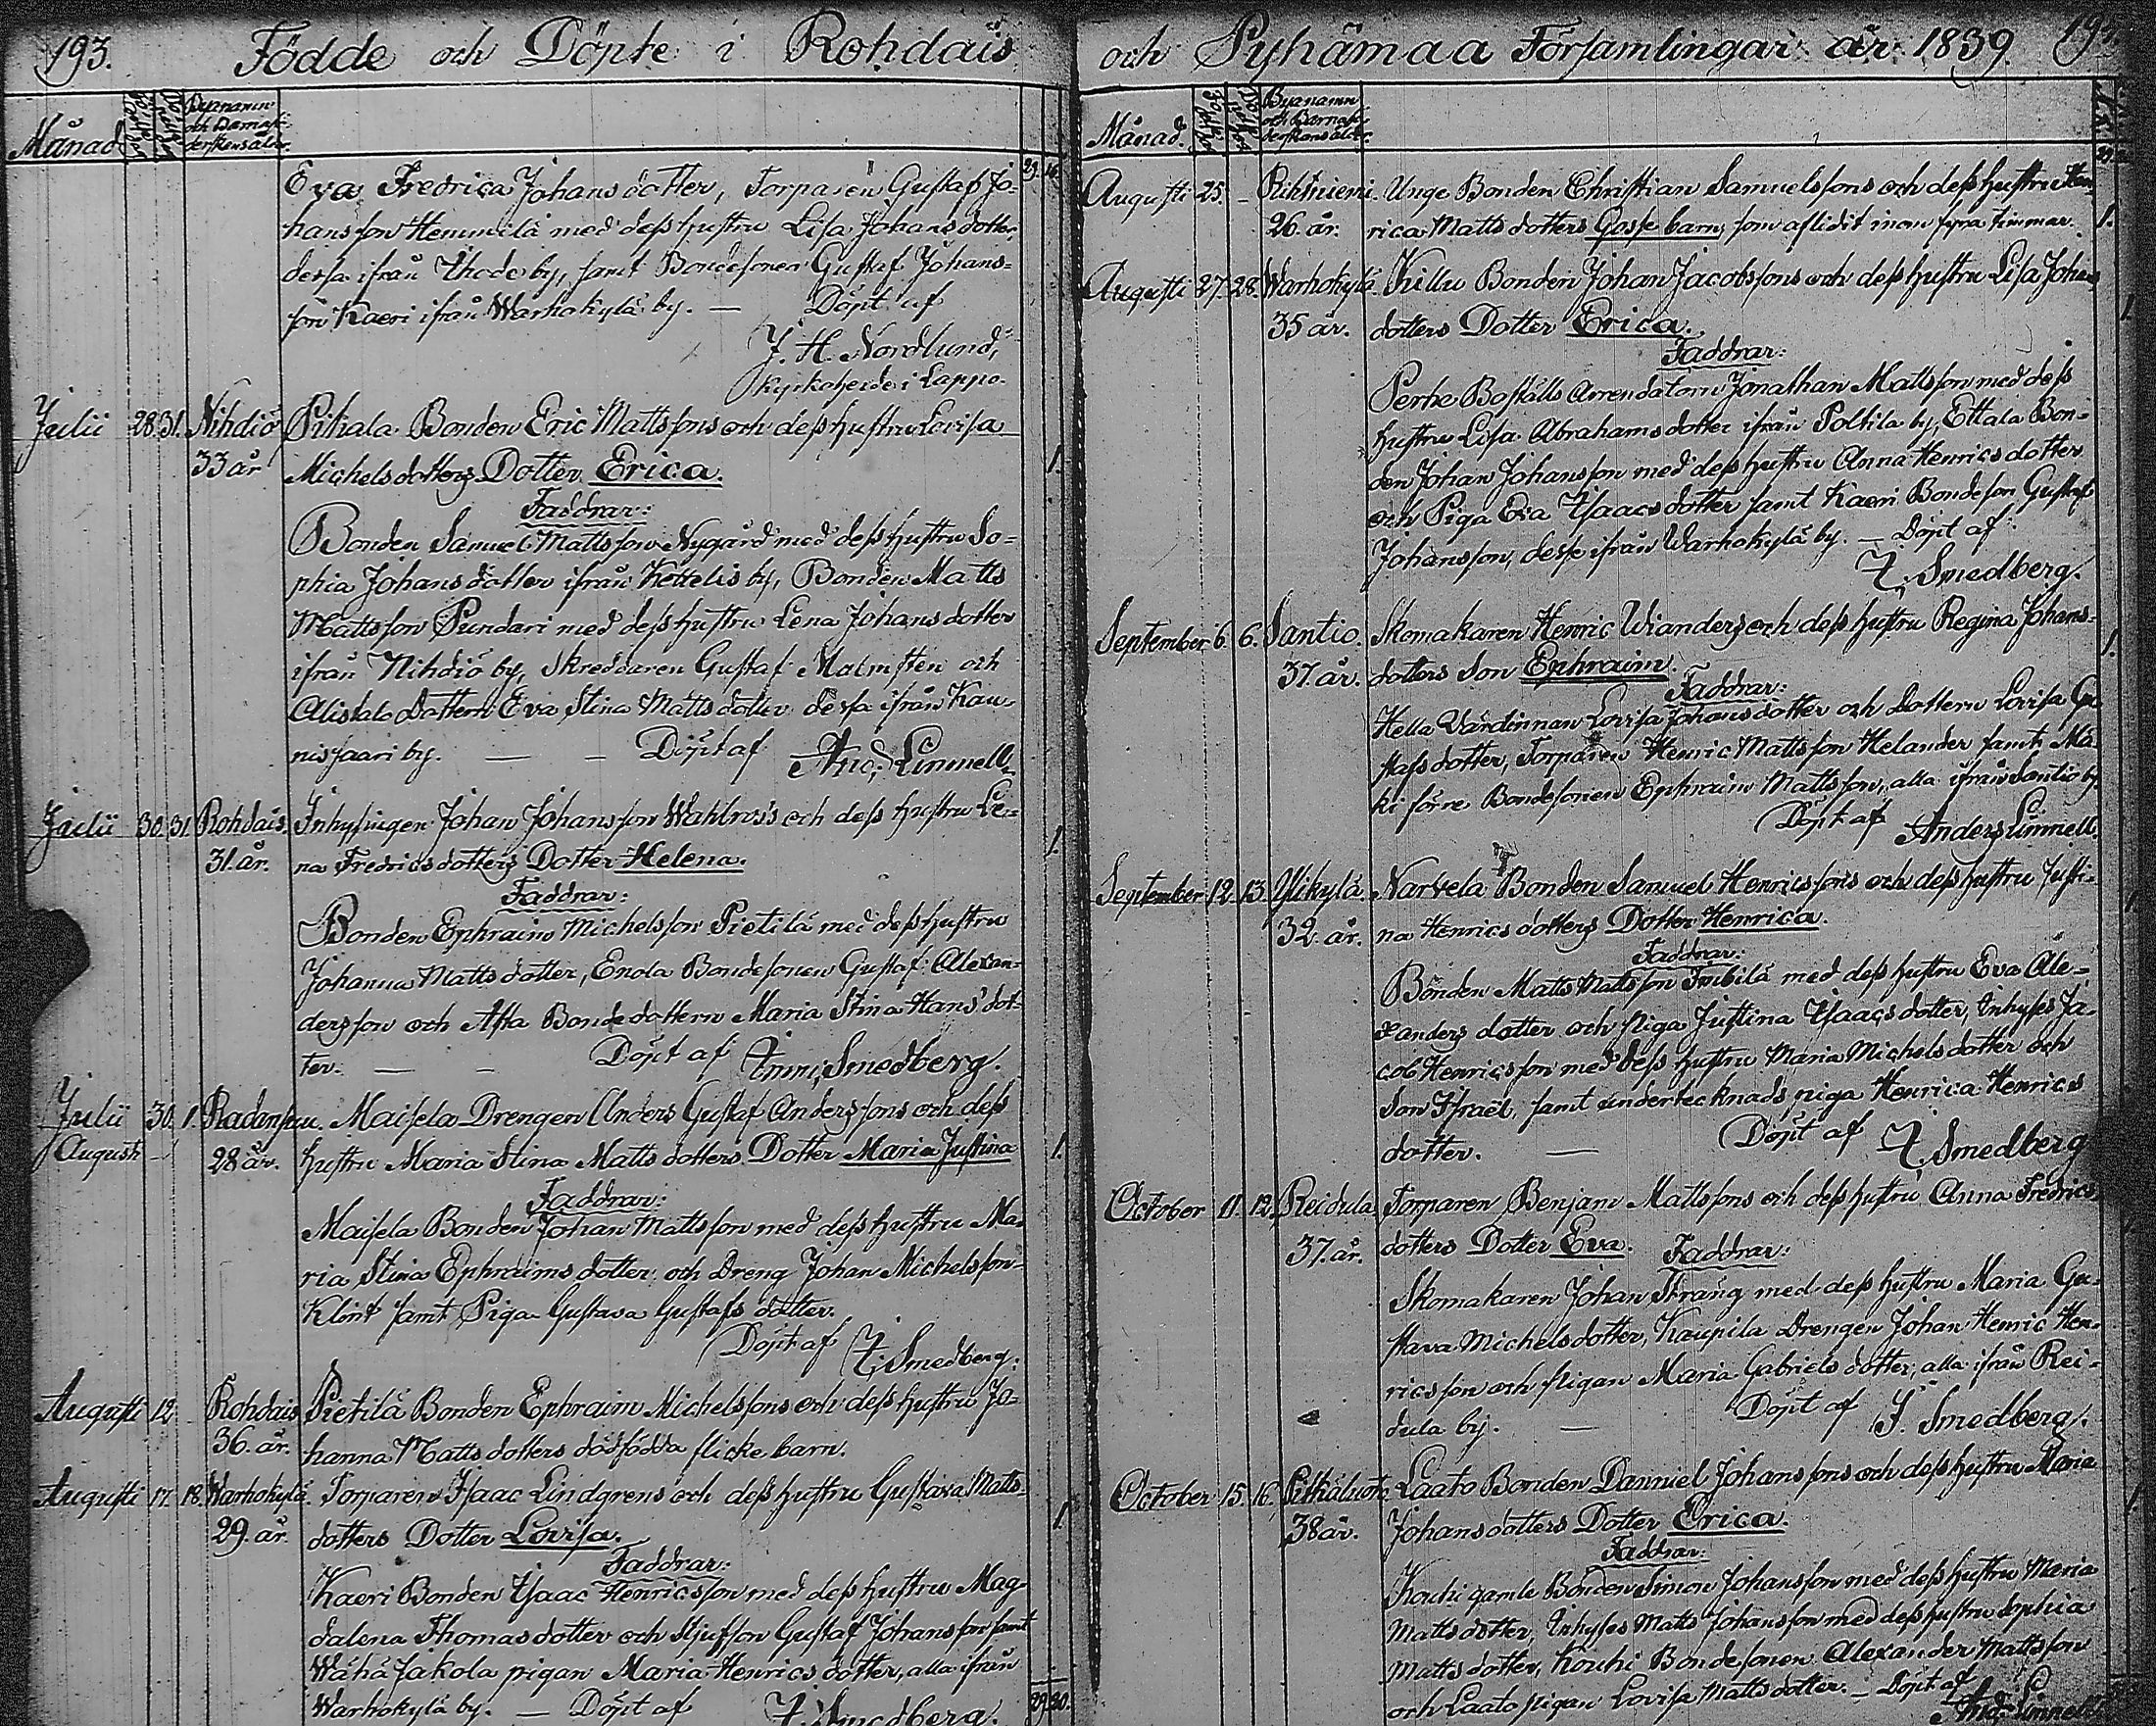 193. Födde och Döpte i Rohdais
Månad Byanamn
och Barnaföderskans ålder.
29. 16.
Eva Fredrica Johansdotter, Torparen Gustaf Jo-
hansson Hemmilä med dess hustru Lisa Johansdotter,
dessa ifrån Ihode by, samt Bondesonen Gustaf Johans=
son Kaeri ifrån Warhokylä by. — Döpt af
J. H. Nordlund,
Kyrkoherde i Lappo.
Julii 28. 31. Nihdiö Pihala Bonden Eric Mattssons och dess hustru Lovisa
33 år Michelsdotters Dotter Erica. 1.
Faddrar:
Bonden Samuel Mattsson Nygård med dess hustru So=
phia Johansdotter ifrån Kettelis by, Bonden Matts
Mattsson Pundari med dess hustru Lena Johansdotter
ifrån Nihdiö by, Skreddaren Gustaf Malmsten och
Aliskala Dottern Eva Stina Mattsdotter dessa ifrån Kau-
nissaari by. — — Döpt af And. Limnell.
Julii 30. 31. Rohdais Inhysingen Johan Johansson Wahlross och dess hustru Le=
31. år. na Fredricsdotters Dotter Helena. 1.
Faddrar:
Bonden Ephraim Michelsson Pietilä med dess hustru
Johanna Mattsdotter, Enola Bondesonen Gustaf Alexan-
dersson och Asta Bondedottern Maria Stina Hansdot-
ter. — — Döpt af Smedberg.
Julii 30. 1. Radansuu. Maisela Drengen Anders Gustaf Anderssons och dess
Augusti 28 år. hustru Maria Stina Mattsdotters Dotter Maria Justina 1.
Faddrar:
Maisela Bonden Johan Mattsson med dess hustru Ma-
ria Stina Ephraimsdotter och Dreng Johan Michelsson
Klint samt Piga Gustava Gustafsdotter.
Döpt af Smedberg.
Augusti 12. Rohdais Pietilä Bonden Ephraim Michelssons och dess hustru Jo-
36. år. hanna Mattsdotters dödfödda flickebarn.
Augusti 17. 18. Warhokylä. Torparen Isaac Lindgrens och dess hustru Gustava Matts-
29. år. dotters Dotter Lovisa. 1.
Faddrar:
Kaeri Bonden Isaac Henricsson med dess hustru Mag-
dalena Thomasdotter och Stjufson Gustaf Johansson samt
Wähä Jakola pigan Maria Henricsdotter, alla ifrån
Warhokylä by. — Döpt af Smedberg. 29. 20.
och Pyhämaa Församlingar år 1839.
Månad. Byanamn
och Barnaföderskans ålder.
Augusti 25. – Rihtniemi. Unge Bonden Christian Samuelssons och dess hustru Hen-
26. år. rica Mattsdotters Gosse barn, som aflidit inom fyra timmar. 1.
Augusti 27. 28. Warhokylä. Killu Bonden Johan Jacobssons och dess hustru Lisa Johans
35 år. dotters Dotter Erica. 1.
Faddrar:
Perhe Boställs Arrendatorn Jonathan Mattsson med dess
hustru Lisa Abrahamsdotter ifrån Poltila by, Ettala Bon-
den Johan Johansson med dess hustru Anna Henricsdotter
och Piga Eva Isaacsdotter samt Kaeri Bondeson Gustaf
Johansson, desse ifrån Warhokylä by. — Döpt af
Smedberg.
September 6. 6. Santio. Skomakaren Henric Wianders och dess hustru Regina Johans-
37. år. dotters Son Ephraim. 1.
Faddrar:
Hella Värdinnan Lovisa Johansdotter och Dottern Lovisa Gu
stafsdotter, Torparen Henric Mattsson Helander samt Mä-
ki förre Bondesonen Ephraim Mattsson, alla ifrån Santio by.
Döpt af Anders Limnell.
September 12. 13. Ylikylä. Narvela Bonden Samuel Henricssons och dess hustru Justi-
32. år. na Henricsdotters Dotter Henrica.
Faddrar:
Bonden Matts Mattsson Inbilä med dess hustru Eva Ale-
xandersdotter och piga Justina Isaacsdotter, Inhyses Ja-
cob Henricsson med dess hustru Maria Michelsdotter och
Son Israël, samt undertecknads piga Henrica Henrics
dotter. — Döpt af Smedberg
October 11. 12. Reidula Torparen Benjam Mattssons och dess hustru Anna Fredrics
37. år. dotters Dotter Eva. Faddrar:
Skomakaren Johan Sträng med dess hustru Maria Gu-
stava Michelsdotter, Kaupila Drengen Johan Henric Hen-
ricsson och pigan Maria Gabrielsdotter, alla ifrån Rei-
dula by. — Döpt af Smedberg.
October 15. 16. Pitkäluoto. Laato Bonden Danniel Johanssons och dess hustru Maria
38 år. Johansdotters Dotter Erica. 1.
Faddrar:
Kouhi gamle Bonden Simon Johansson med dess hustru Maria
Mattsdotter, Inhyses Matts Johansson med dess hustru Sophia
Mattsdotter, Kouhi Bondesonen Alexander Mattsson
och Laato pigan Lovisa Mattsdotter. — Döpt af
And. Limnell